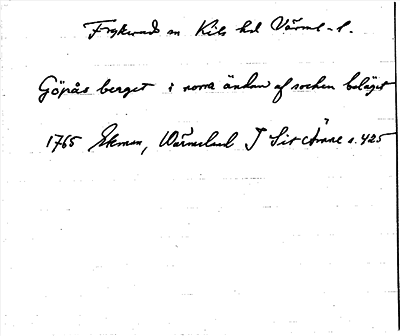 Frykerud sn Kils hd Värml. l.
Göpås berget i norra ändan af socken beläget
1765 Ekman, Wärmeland I Sitt Ämne s. 425